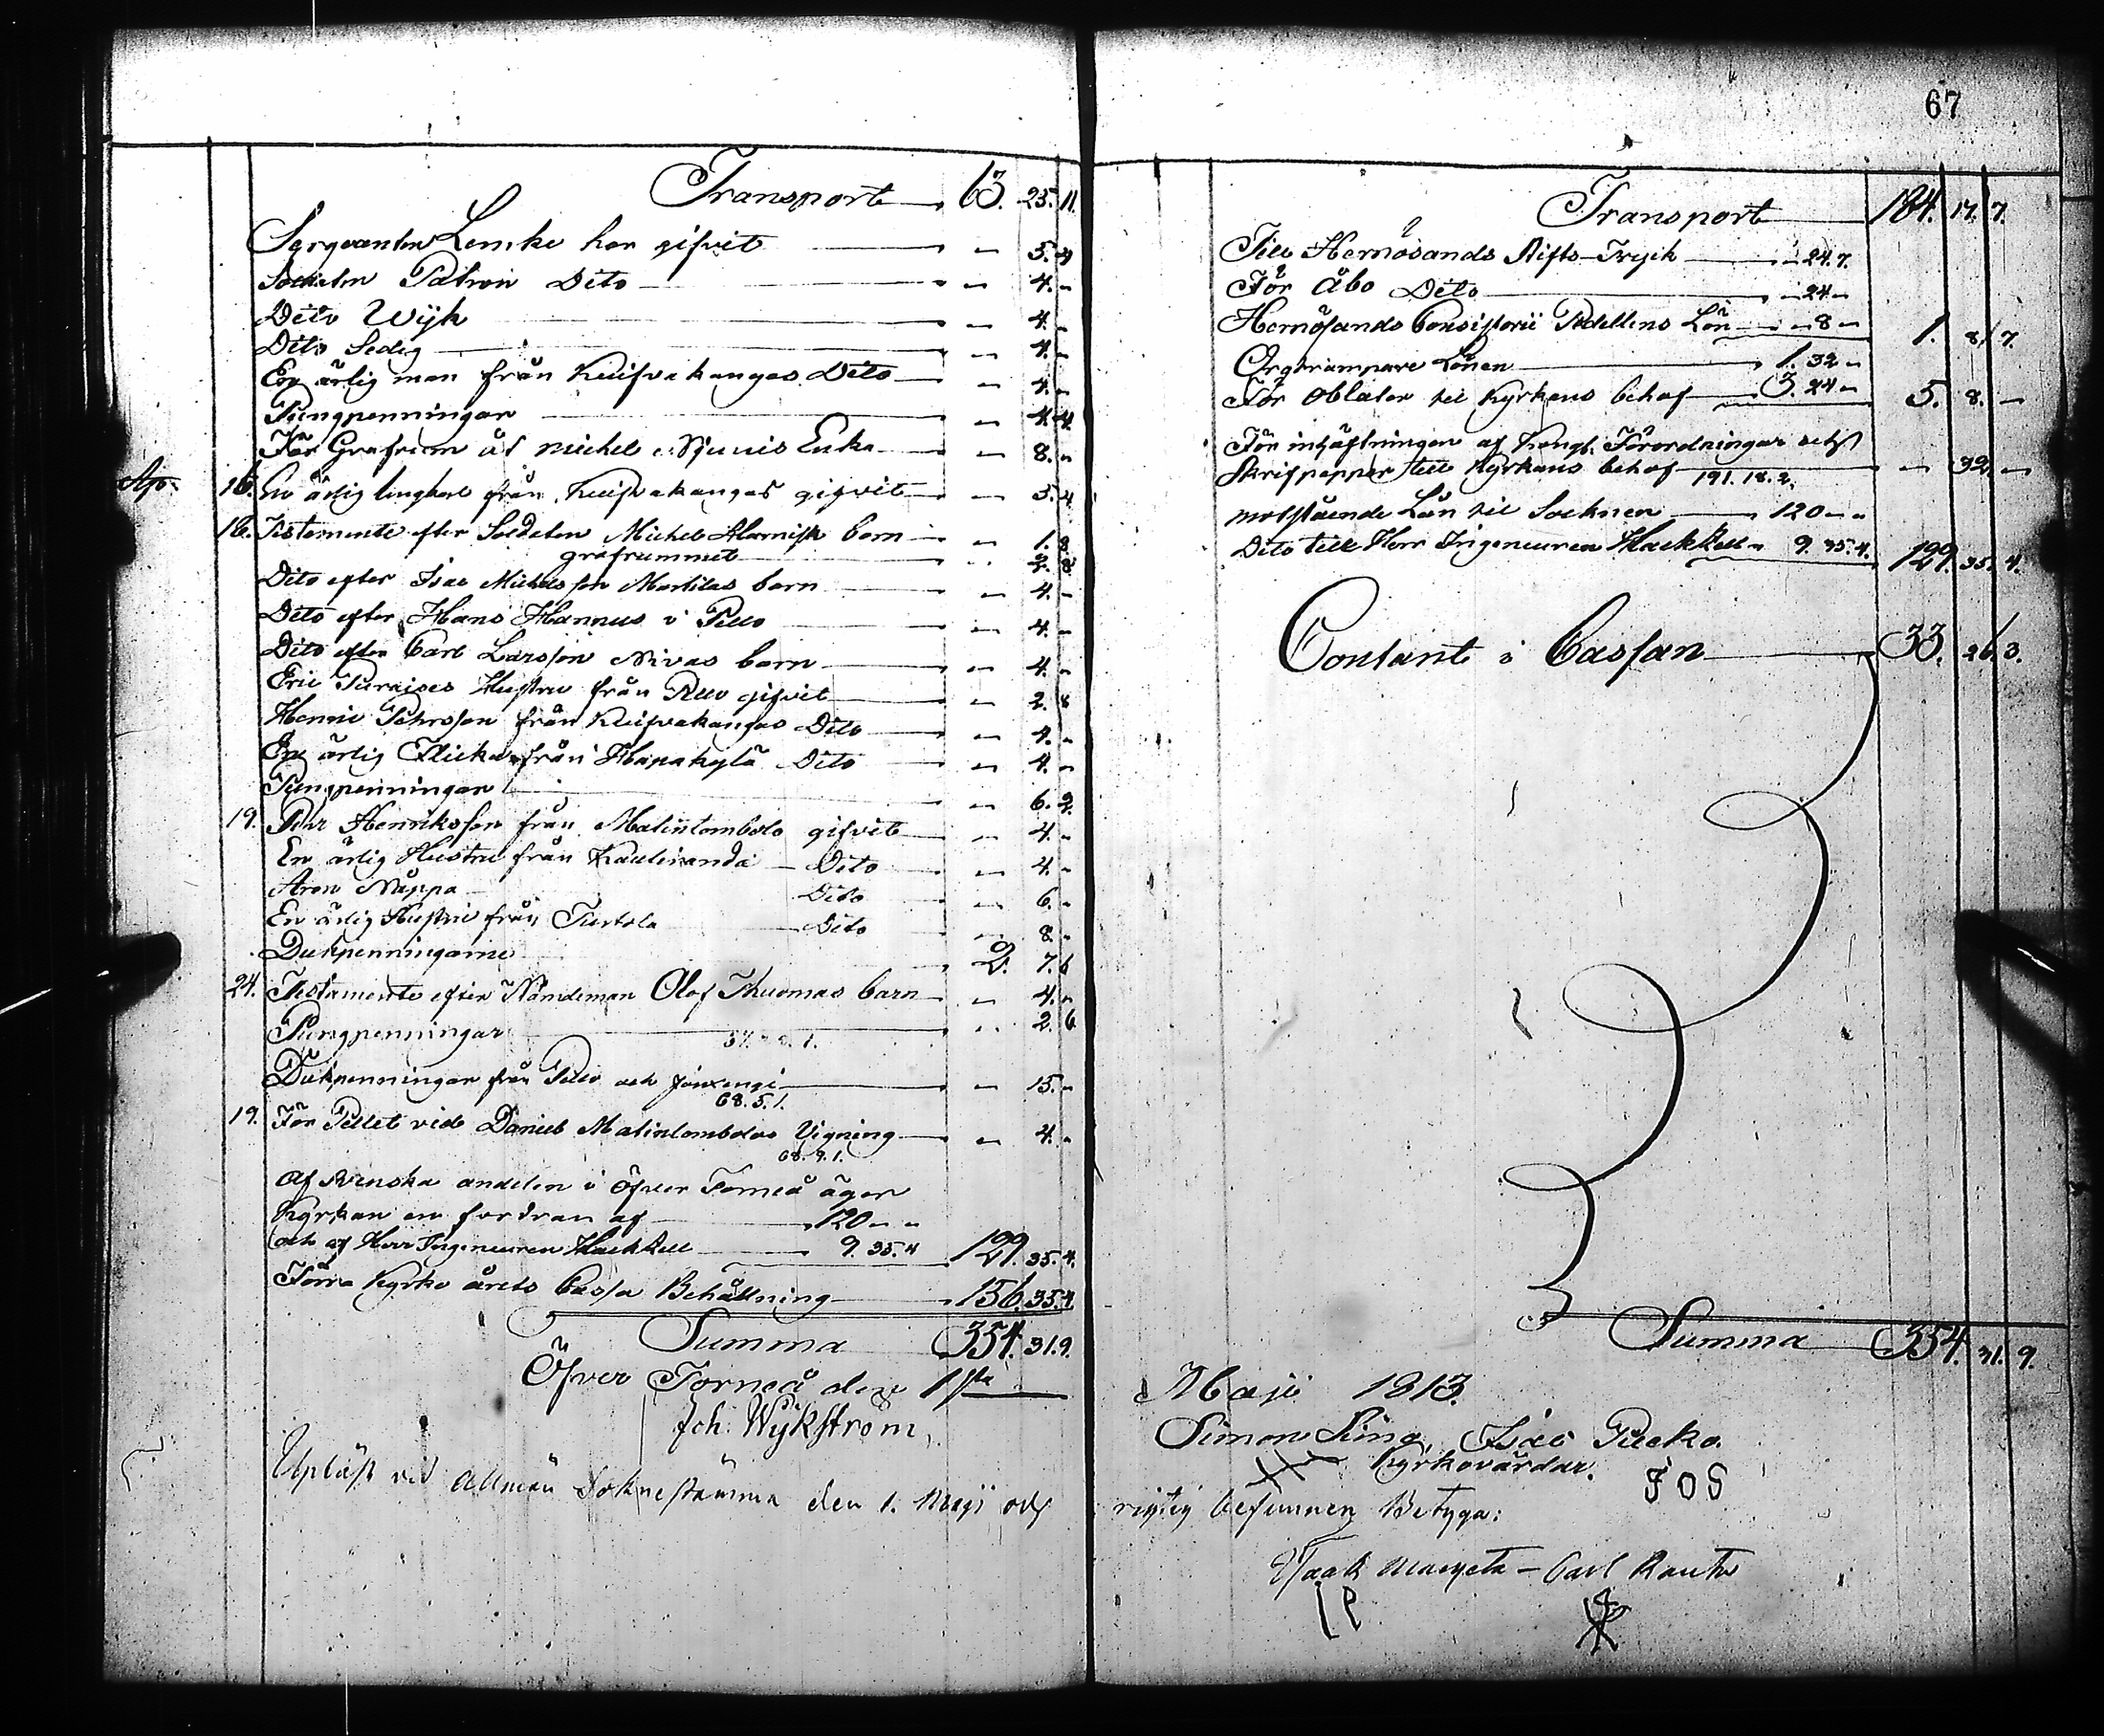 Transport 63. 25. 11.
Sergeanten Lemke har gifvit " 5. 4
Soldaten Patron Dito " 4. "
Dito Wijk " 4. "
Dito Sedig " 4. "
En ärlig man från Kuifvakangas Dito " 4. "
Pungpenningar " 4. 4.
För Grafrum åt Michel Enka " 8. "
Ap. 15. En ärlig från Kuifvakangas gifvit " 5. 4
16. Testamente efter Soldaten Michel Harnisk barn " 1. 8.
grafrummet " 2. 8
Dito efter Isac Michelsson Martilas barn " 4. "
Dito efter Hans Hannus i Pello " 4. "
Dito efter Carl Larsson Nivas barn " 4. "
Eric Hustru från Pello gifvit " 2. 8
Henric Pehrsson från Kuifvakangas Dito " 4. "
En ärlig Flicka från Hapakylä Dito " 4. "
Pungpenningar " 6. 2.
19. Pehr Henriksson från Matintombolo gifvit " 4. "
En ärlig Hustru från Kauliranda Dito " 4. "
Aron Näppa Dito " 6. "
En ärlig Hustru från Turtola Dito " 8. "
Dukpenningarne 2. 7. 6
24. Testamente efter Nämdeman Olof Thuomas barn " 4. "
Pungpenningar " 2. 6
Dukpenningar från Pello och Jouxengi " 15. "
68. 5. 1.
19. För Pellet vid Daniel Matintombolos Vigning " 4. "
68. 9. 1.
Af Svenska andelen i Öfver Torneå äger
Kyrkan en fordran af 120 " "
och af Herr Ingeneuren Hackzell 9. 35. 4 129. 35. 4.
Förra Kyrko årets Cassa Behållning 156. 35. 4
Summa 354. 31. 9.
Öfver Torneå den 1sta
Joh: Wijkström.
Upläst vid Allmän Soknestämma den 1. Maji och
67
Transport 184. 17. 7.
Till Hernösands Stifts-Tryck " 24. 7.
För Åbo Dito " 24 "
Hernösands Consistorii Pedellens Lön " 8 " 1. 8. 7.
Orgtrampare Lönen 1. 32 "
För Oblater til Kyrkans behof 3. 24 " 5. 8. "
För inhäftningen af Kongl: Förordningar och
Skrifpapper till Kyrkans behof " 32. "
191. 18. 2.
motstående Lån til Socknen 120 " "
Dito till Herr Ingeneuren Hackzell " 9. 35. 4. 129. 35. 4.
Contant i Cassan 33. 26. 3.
Summa 354. 31. 9.
Maji 1813.
Simon Isac Pecko.
Kyrkovärdar.
I O S
rigtig befunnen Betyga:
Isaak Carl Rautio
I P